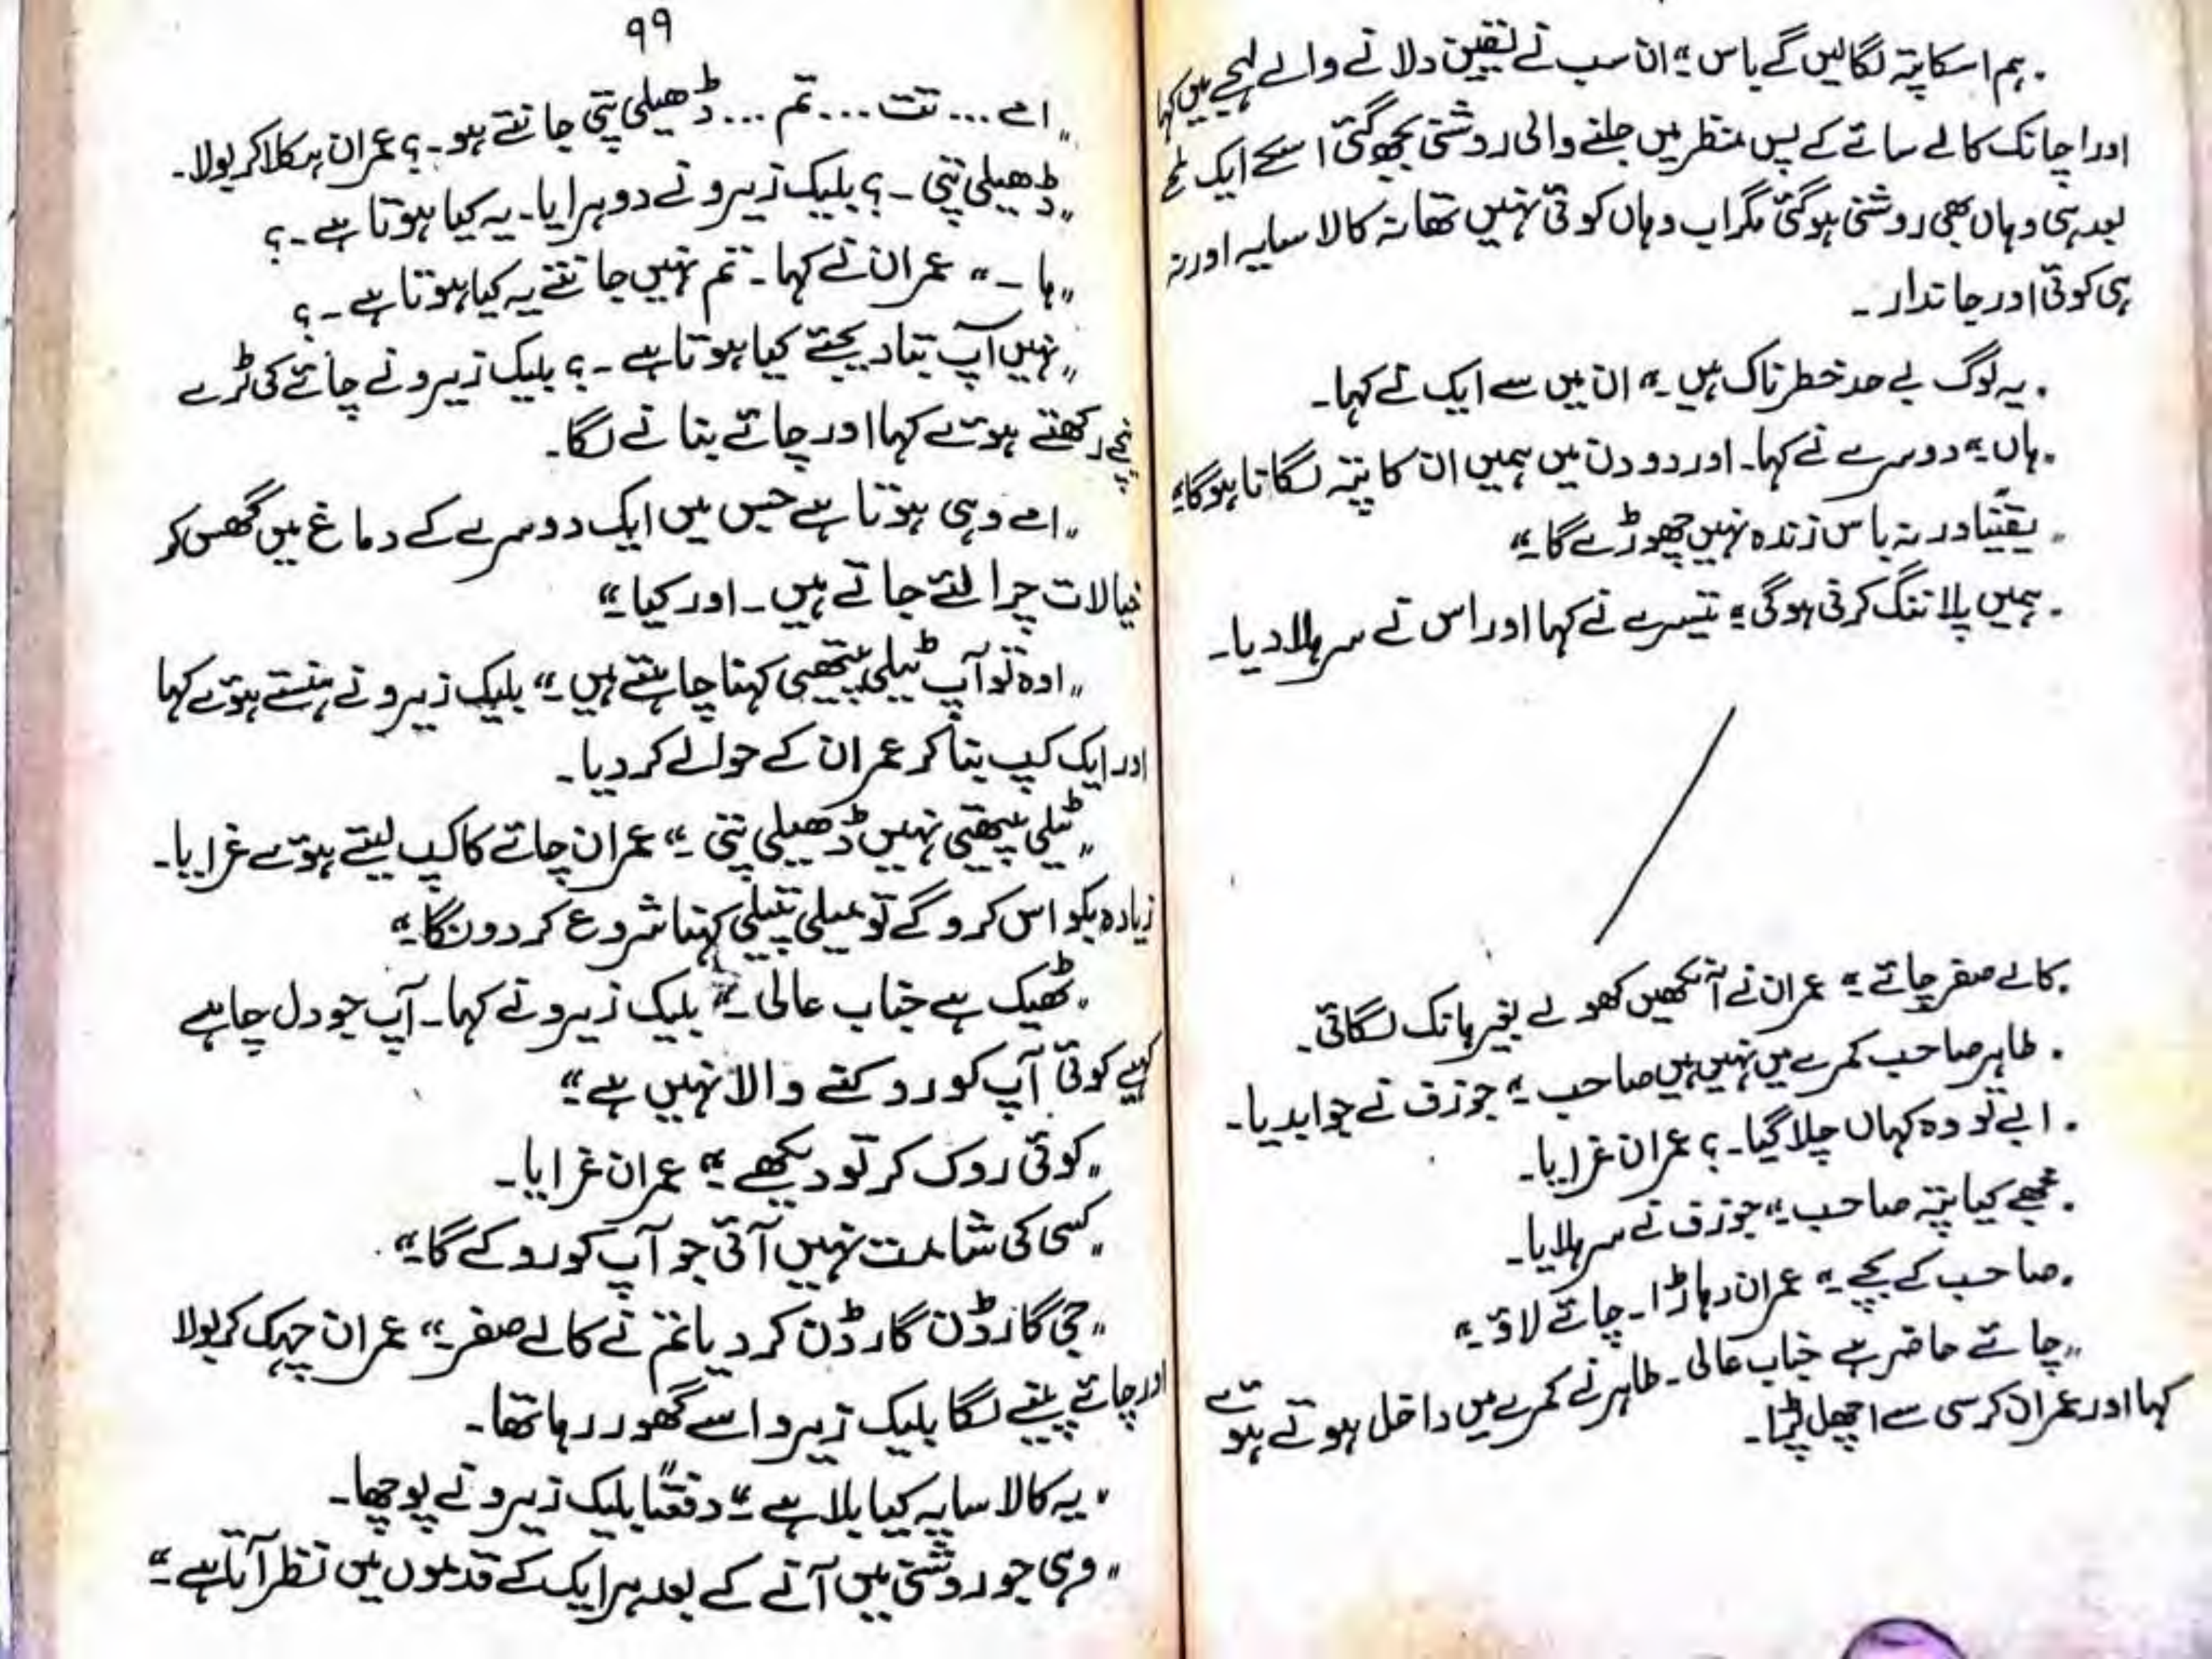 "ہم اسکا پتہ لگالیں گے باس"۔ ان سب نے یقین دلانے والے لہجے میں کہا
اور اچانک کالے سائے کے پس منظر میں جلنے والی روشنی بجھ گئی اسکے ایک لمحے
بعد ہی وہاں بھی روشنی ہوگئی مگر اب وہاں کوئی نہیں تھا نہ کالا سایہ اور نہ
ہی کوئی اور جاندار۔
"یہ لوگ بے حد خطرناک ہیں"۔ ان میں سے ایک نے کہا۔
"ہاں"۔ دوسرے نے کہا۔ اور دو دن میں ہمیں ان کا پتہ لگانا ہوگا"۔
"یقیناً ورنہ باس زندہ نہیں چھوڑے گا"۔
"ہمیں پلاننگ کرنی ہوگی"۔ تیسرے نے کہا اور اس نے سر ہلا دیا۔
"کالے صفر چائے"۔ عمران نے آنکھیں کھولے بغیر ہانک لگائی۔
"طاہر صاحب کمرے میں نہیں ہیں صاحب"۔ جوزف نے جوابدیا۔
"ابے تو وہ کہاں چلا گیا۔؟ عمران غرایا۔
"مجھے کیا پتہ صاحب"۔ جوزف نے سر ہلایا۔
"صاحب کے بچے"۔ عمران دہاڑا۔ چائے لاؤ"۔
"چائے حاضر ہے جناب عالی۔ طاہر نے کمرے میں داخل ہوتے ہوئے
کہا اور عمران کرسی سے اچھل پڑا۔
۹۹
"امے... تت... تم... ڈھیلی پتی جانتے ہو۔؟ عمران ہکلا کر بولا۔
"ڈھیلی پتی۔؟ بلیک زیرو نے دوہرایا۔ یہ کیا ہوتا ہے۔؟
"ہا۔" عمران نے کہا۔ تم نہیں جانتے یہ کیا ہوتا ہے۔؟
"نہیں آپ بتا دیجئے کیا ہوتا ہے۔؟ بلیک زیرو نے چائے کی ٹرے
نیچے رکھتے ہوئے کہا اور چائے بنانے لگا۔
"امے وہی ہوتا ہے جس میں ایک دوسرے کے دماغ میں گھس کر
خیالات چرا لئے جاتے ہیں۔ اور کیا"۔
"اوہ تو آپ ٹیلی پیتھی کہنا چاہتے ہیں"۔ بلیک زیرو نے ہنستے ہوئے کہا
اور ایک کپ بنا کر عمران کے حوالے کر دیا۔
"ٹیلی پیتھی نہیں ڈھیلی پتی"۔ عمران چائے کا کپ لیتے ہوئے غرایا۔
زیادہ بکواس کروگے تو میلی پتیلی کہنا شروع کر دونگا"۔
"ٹھیک ہے جناب عالی"۔ بلیک زیرو نے کہا۔ آپ جو دل چاہے
کہیے کوئی آپ کو روکنے والا نہیں ہے"
"کوئی روک کر تو دیکھے"۔ عمران غرایا۔
"کسی کی شامت نہیں آئی جو آپ کو روکے گا"۔
"جی گارڈن گارڈن کر دیا تم نے کالے صفر"۔ عمران چہک کر بولا
اور چائے پینے لگا بلیک زیرو اسے گھور رہا تھا۔
"یہ کالا سایہ کیا بلا ہے"۔ دفعتاً بلیک زیرو نے پوچھا۔
"وہی جو روشنی میں آنے کے بعد ہر ایک کے قدموں میں نظر آتا ہے"۔